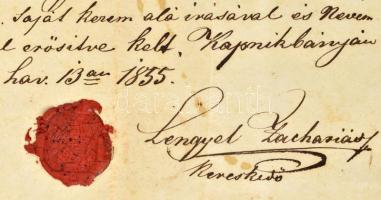 Saját kezem alá irásával és Nevem
l erősitve kelt. Kapnikbányán
hav. 13an 1855.
Lengyel Zachariás
Kereskedő